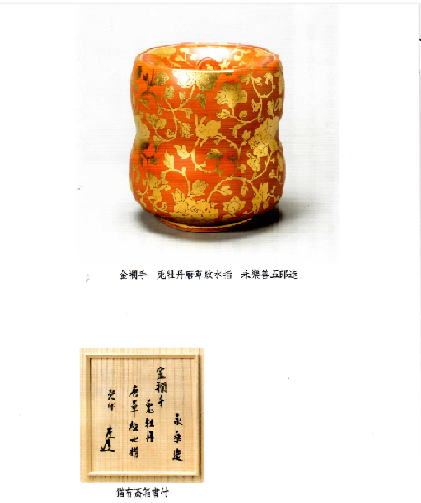 金襴手　兎牡丹唐草紋水指　永樂善五郎造
永樂造
金襴手
兎牡丹
唐草紋水指
猶有斎箱書付